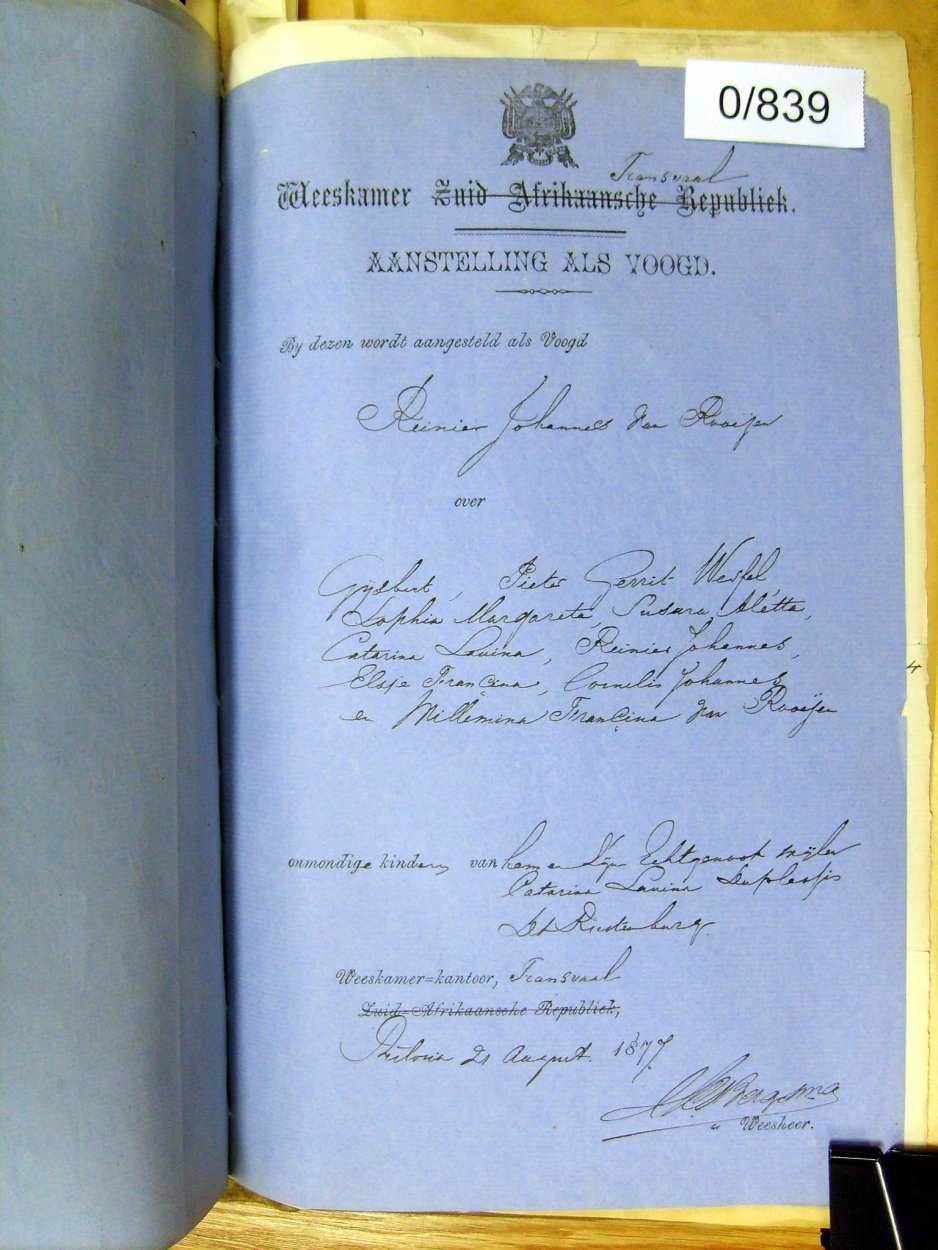 0/839
Transvaal
Weeskamer Zuid Afrikaansche Republiek.
AANSTELLING ALS VOOGD.
By dezen wordt aangesteld als Voogd
Reinier Johannes van Rooijen
over
Gijsbert, Pieter Gerrit Wessel
Sophia Margareta, Susara Aletta,
Catarina Lavina, Reinier Johannes,
Elsje Francina, Cornelis Johannes
en Willemina Francina van Rooijen
4
onmondige kinderen van hem en zijn Echtgenoot wijlen
Catarina Lavina Duplessis
Dt Rustenburg.
Weeskamer=kantoor, Transvaal
Zuid=Afrikaansche Republiek,
Pretoria 21 August. 1877.
Bergsma
Weesheer.